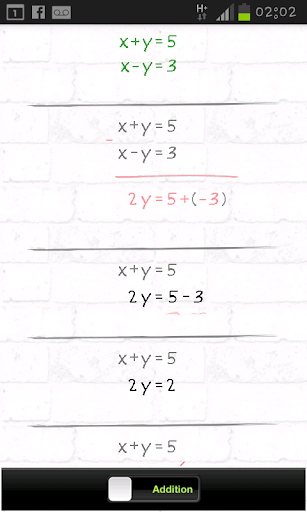 1 H+ 02:02
x+y=5
x-y=3
x+y=5
-
x-y=3
2y=5+(-3)
x+y=5
2y=5-3
x+y=5
2y=2
x+y=5
Addition